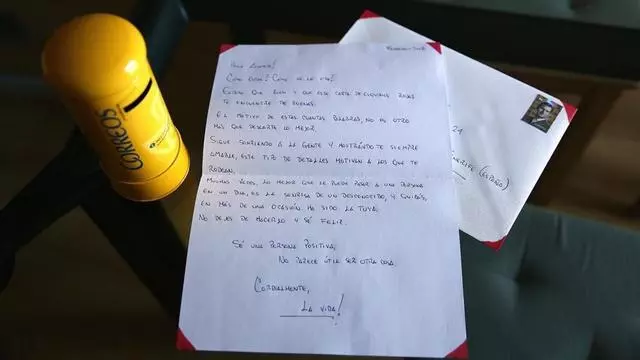 CORREOS
FEBRERO
HOLA
¿CÓMO ESTÁS? ¿CÓMO TE VA
ESPERO QUE BIEN Y QUE ESTA CARTA DE ESQUINAS ROJAS
TE ENCUENTRE DE BUENAS.
EL MOTIVO DE ESTAS CUANTAS PALABRAS, NO ES OTRO
MÁS QUE DESEARTE LO MEJOR.
SIGUE SONRIENDO A LA GENTE Y MOSTRÁNDOTE SIEMPRE
AMABLE, ESTE TIPO DE DETALLES MOTIVAN A LOS QUE TE
RODEAN.
MUCHAS VECES, LO MEJOR QUE LE PUEDE PASAR A UNA PERSONA
EN UN DÍA, ES LA SONRISA DE UN DESCONOCIDO, Y QUIZÁS,
EN MÁS DE UNA OCASIÓN, HA SIDO LA TUYA.
NO DEJES DE HACERLO Y SÉ FELIZ.
SÉ UNA PERSONA POSITIVA,
NO PARECE ÚTIL SER OTRA COSA.
CORDIALMENTE,
LA VIDA!
21
(ESPAÑA)